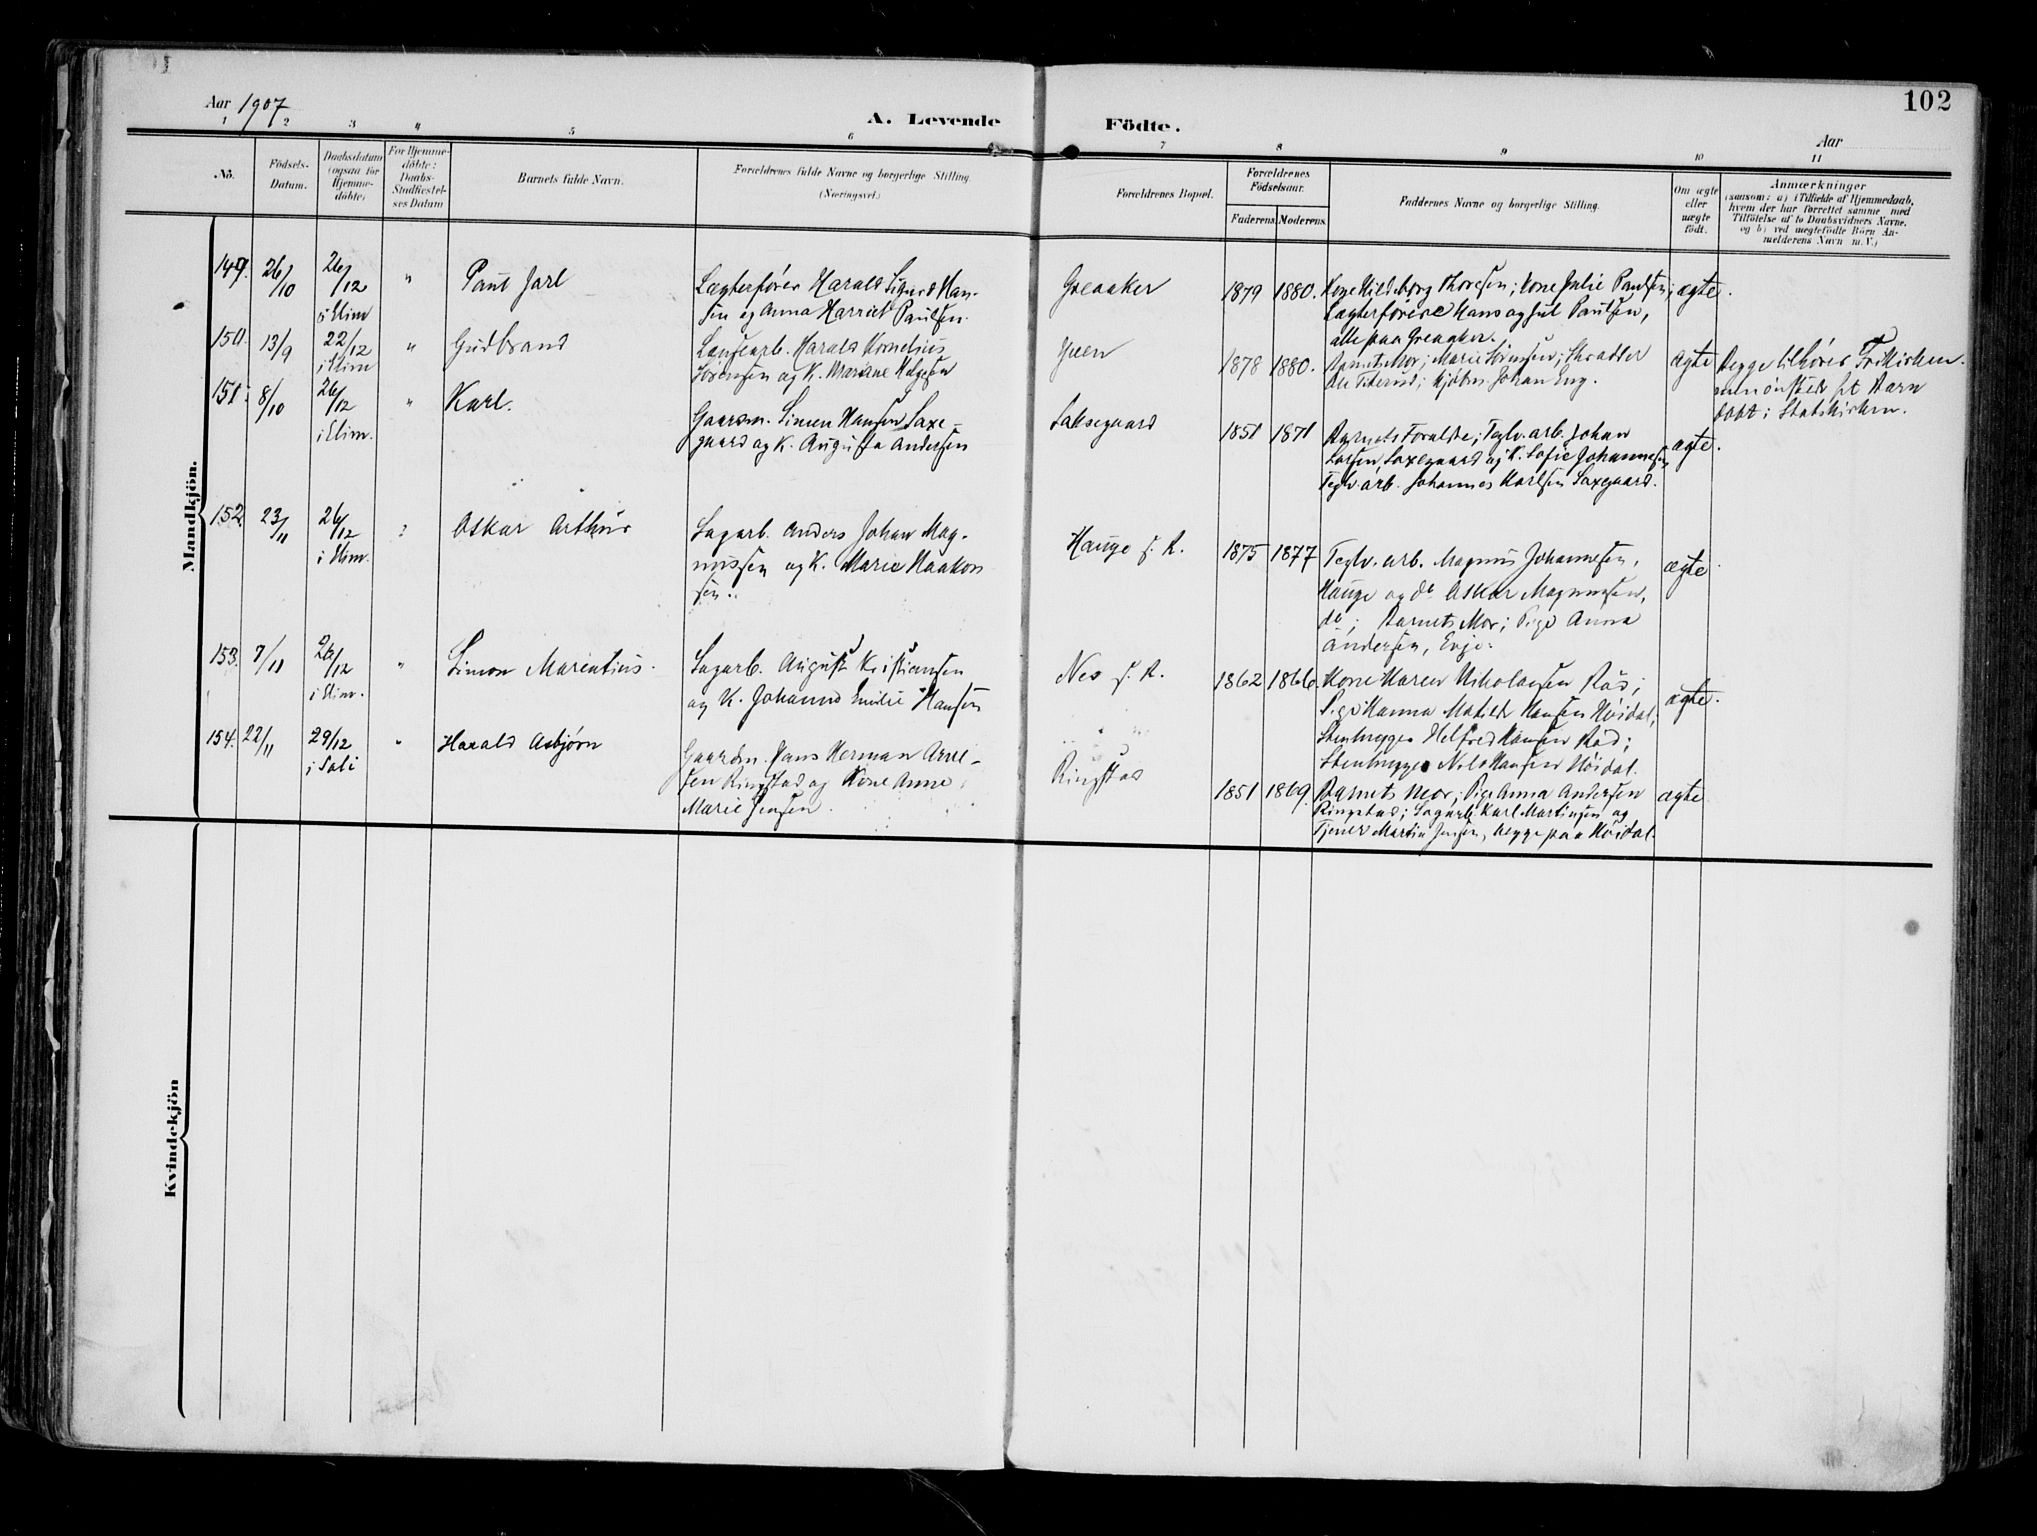 102
Aar 1907
A. Levende Födte.
Aar
1 2 3 4 5 6 7 8 9 10 11
No.
Födsels-
Datum.
Daabsdatum
(ogsaa for
Hjemme-
döbte)
For Hjemme-
döbte:
Daabs-
Stadfæstel-
ses Datum
Barnets fulde Navn.
Forældrenes fulde Navne og borgerlige Stilling.
(Næringsvei.)
Forældrenes Bopæl.
Forældrenes
Födselsaar.
Faderens. Moderens.
Faddernes Navne og borgerlige Stilling.
Om ægte
eller
uægte
födt.
Anmærkninger
(saasom: a) i Tilfælde af Hjemmedaab,
hvem der har forrettet samme med
Tilföielse af to Daabsvidners Navne.
og b) ved uegtefödte Börn An-
melderens Navn m. V.)
Mandkjön.
149. 26/10 26/12 i Elim " Paul Jarl
Lægterfører Harald Sigurd Han-
sen og Anna Harriet Paulsen.
Greaaker 1879 1880.
Kone Hildeborg Thoresen; Kone Julie Paulsen;
Lægterførere Hans og Juel Paulsen,
alle paa Greaaker.
ægte.
150. 13/9 22/12 i Elim " Gudbrand
Harald Kornelius
Sørensen og K. Mariane Helgesen
Yven 1878 1880.
Barnets Mor; Marie Sørensen; Skrædder
Johan Eng.
ægte
Begge tilhører Frikirken.
men ønsket sit Barn
døbt i Statskirken.
151. 8/10 26/12 i Elim. " Karl.
Gaardm. Simen Hansen Saxe-
gaard og K. Augusta Andersen
Saksegaard 1851 1871
Barnets Forældre; Teglv. arb. Johan
Larsen Saxegaard og K. Sofie Johannesen
Teglv. arb. Johannes Karlsen Saxegaard.
ægte.
152. 23/11 26/12 i Elim. " Oskar Arthur
Sagarb. Anders Johan Mag-
nussen og K. Marie Haakon
sen.
Hauge s. R. 1875 1877
Teglv. arb. Magnus Johannesen,
Hauge og do Oskar Magnussen,
do; Barnets Mor; Pige Anna
Andersen, Evje.
ægte
153. 7/11 26/12 i Elim. " Simon Marentius.
Sagarb. August Kristiansen
og K. Johanne Emilie Hansen
Nes s. R. 1862 1866.
Kone Karen Nikolaisen Räd;
Pige Hanna Matilde Hansen Høidal;
Stenhugger Helfred Hansen Räd;
Stenhugger Nils Hansen Høidal.
ægte.
154. 22/11 29/12 i Soli " Harald Asbjørn
Gaardm. Hans Herman Arne-
sen Ringstad og Kone Anne
Marie Jensen.
Ringstad 1851 1869.
Barnets Mor; Pige Anna Andersen
Ringstad; Sagarb. Karl Martinsen og
Tjener Martin Jensen, begge paa Høidal.
ægte
Kvindekjön